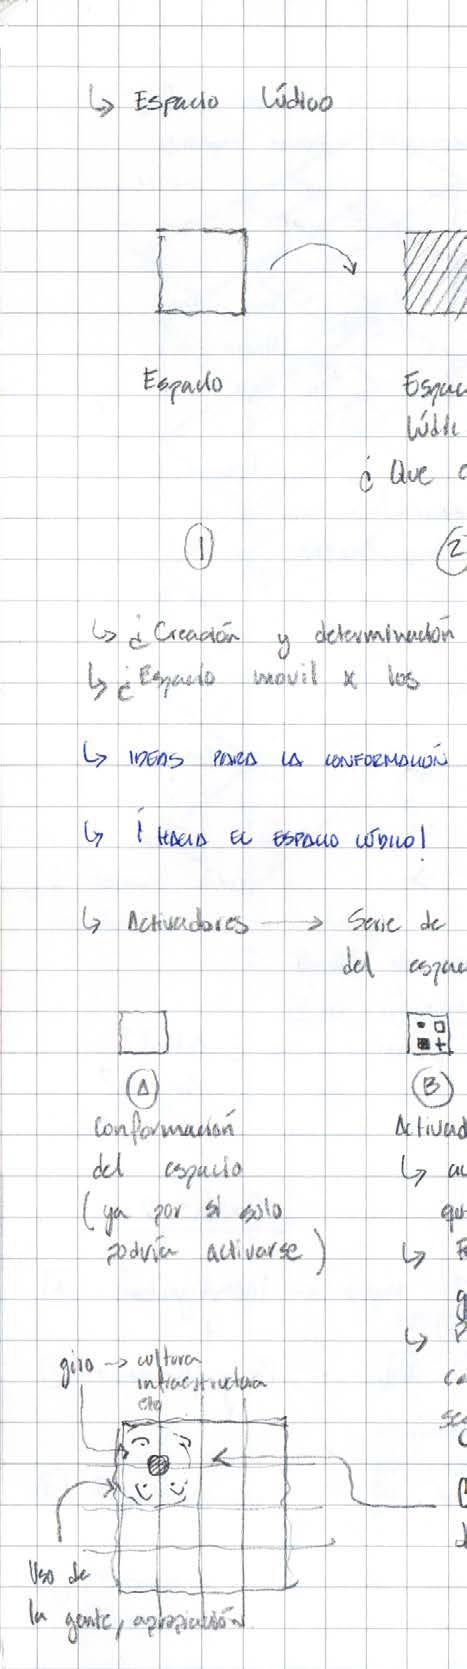 ↳ Espacio Lúdico
Espacio
Espac
Lúdic
¿ Que
1
2
↳ ¿ Creación y determinación
↳ ¿ Espacio movil x los
↳ IDEAS PARA LA CONFORMACIÓN
↳ ¡ HACIA EL ESPACIO LÚDICO!
↳ Activadores → Serie de
del espac
A
B
Conformación
del espacio
(ya por si solo
podría activarse)
Activad
giro → cultura
infraestructura
etc
Uso de
la gente, apropiación